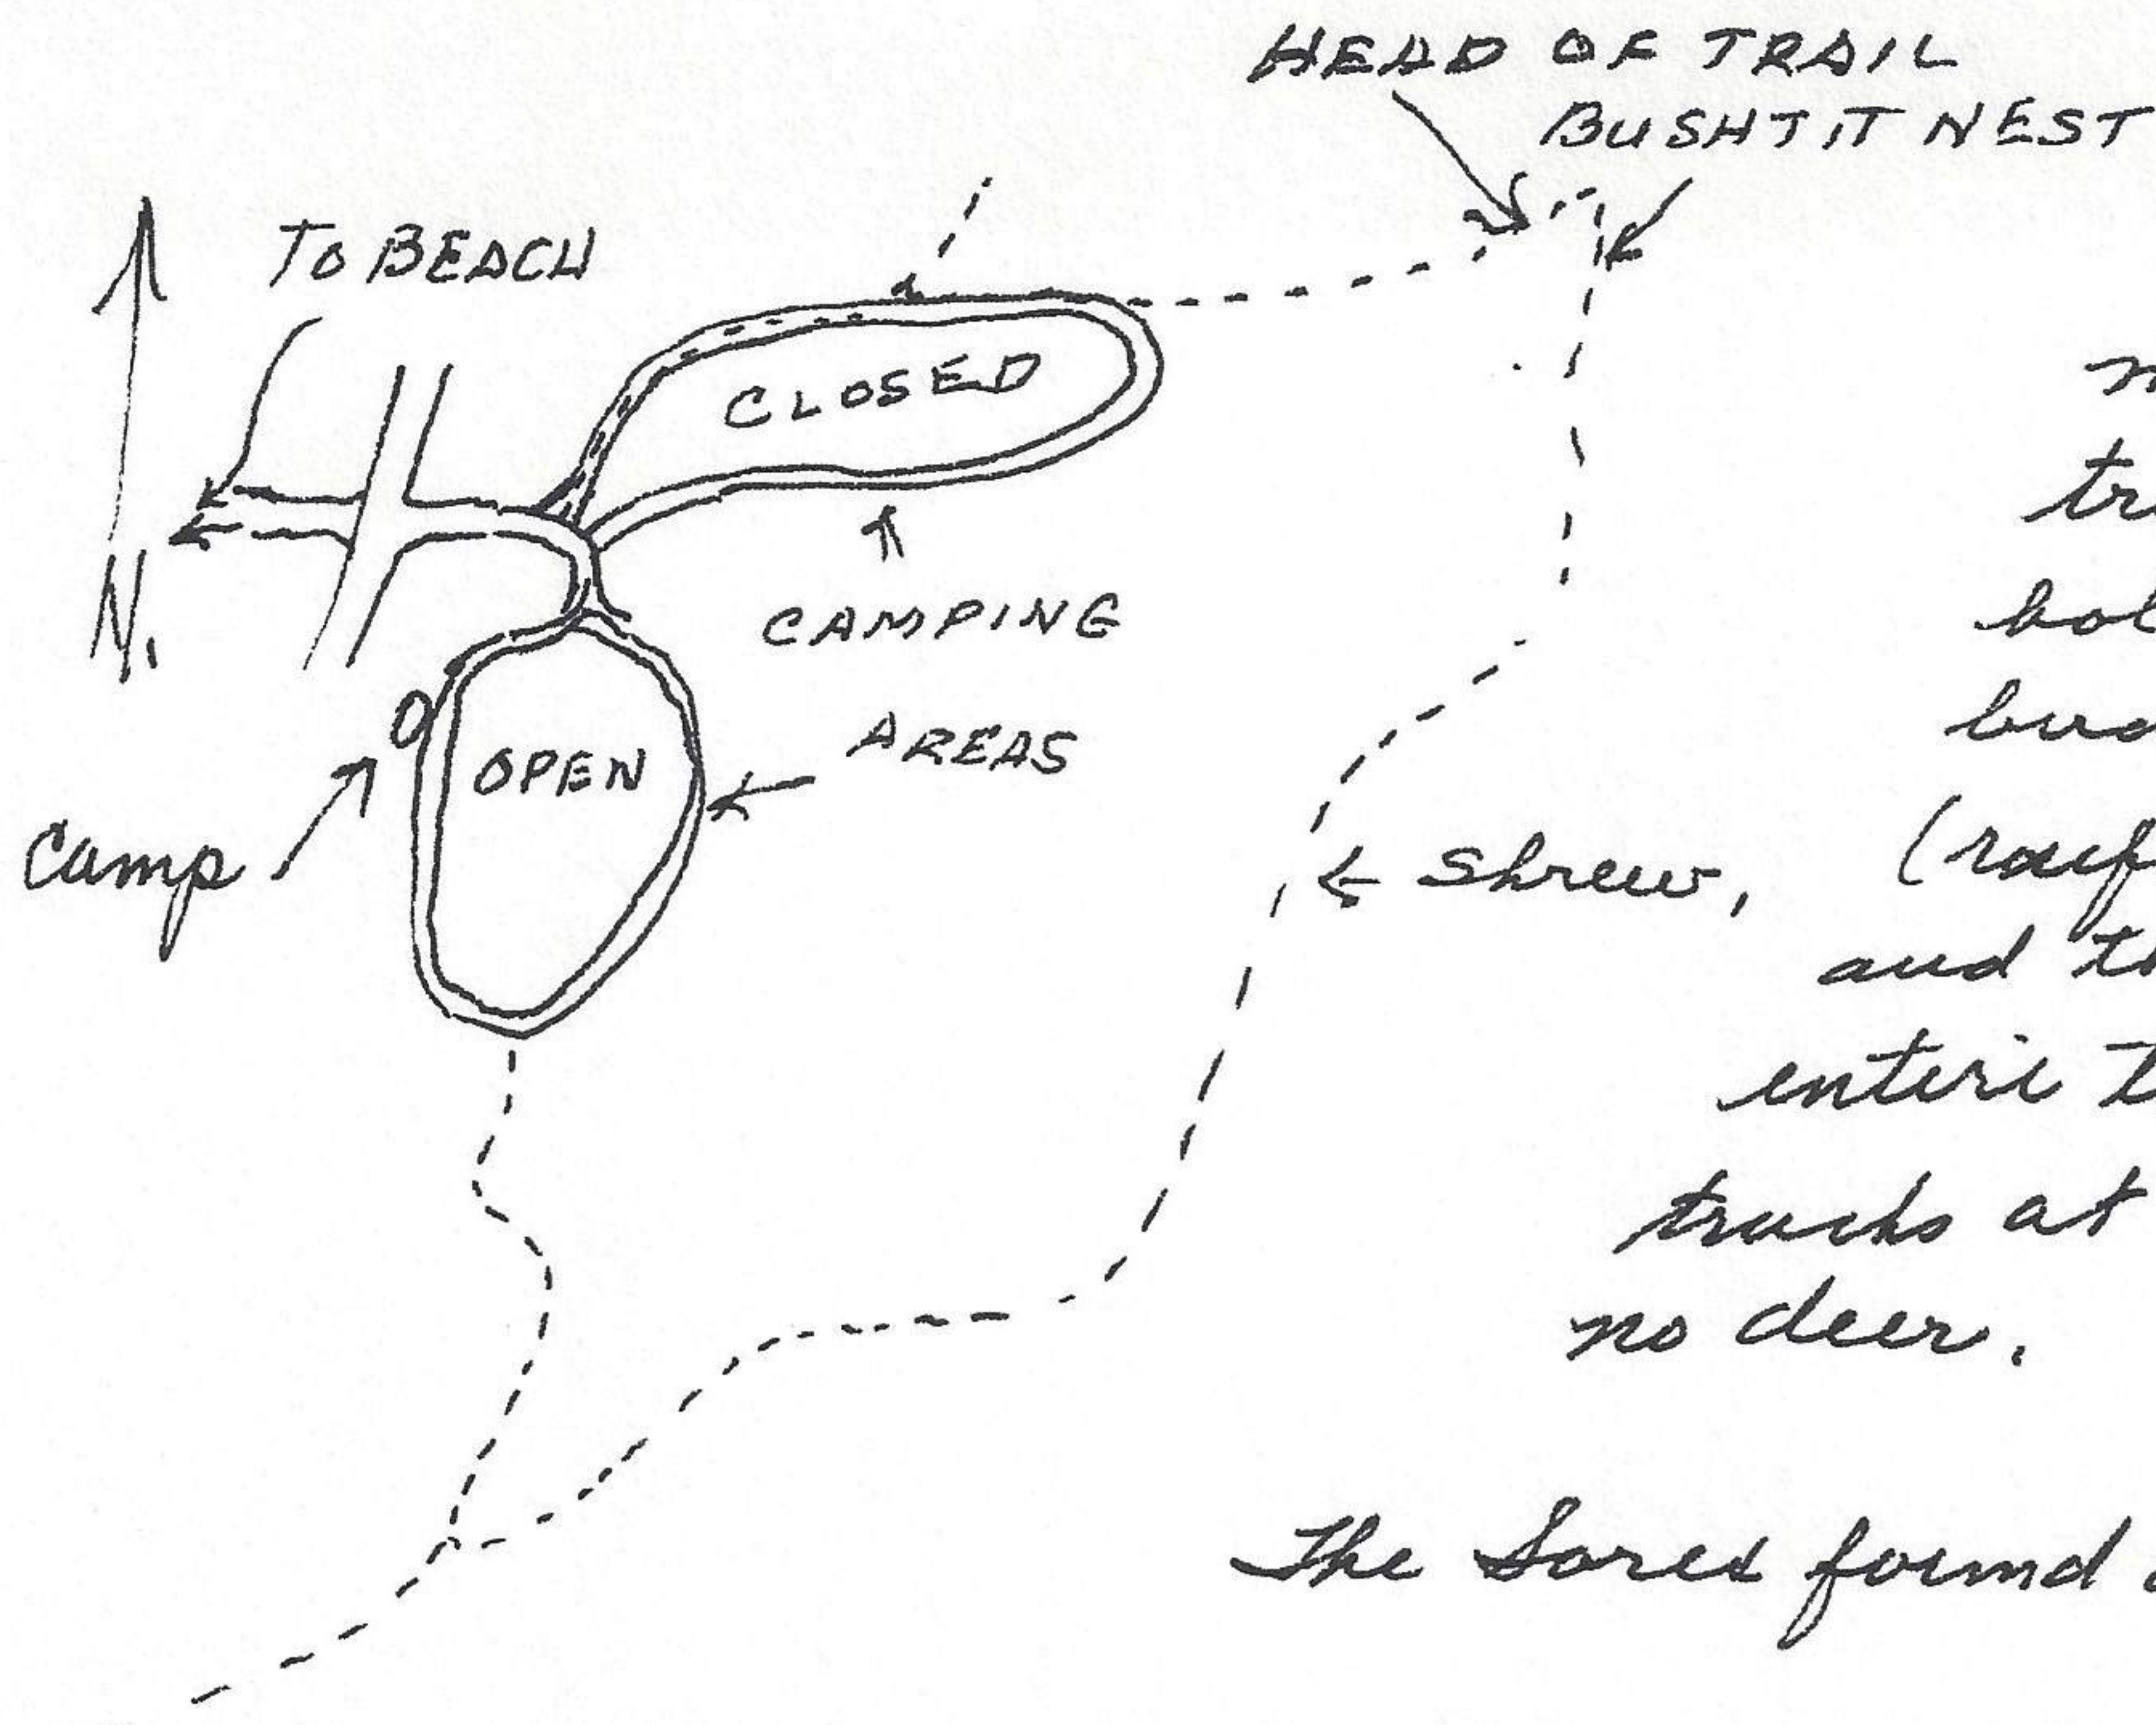 HEAD OF TRAIL
BUSHTIT NEST
TO BEACH
CLOSED
N.
CAMPING
AREAS
OPEN
Camp
Shrew,
and
entire
tracks at
no deer.
The Sorex found